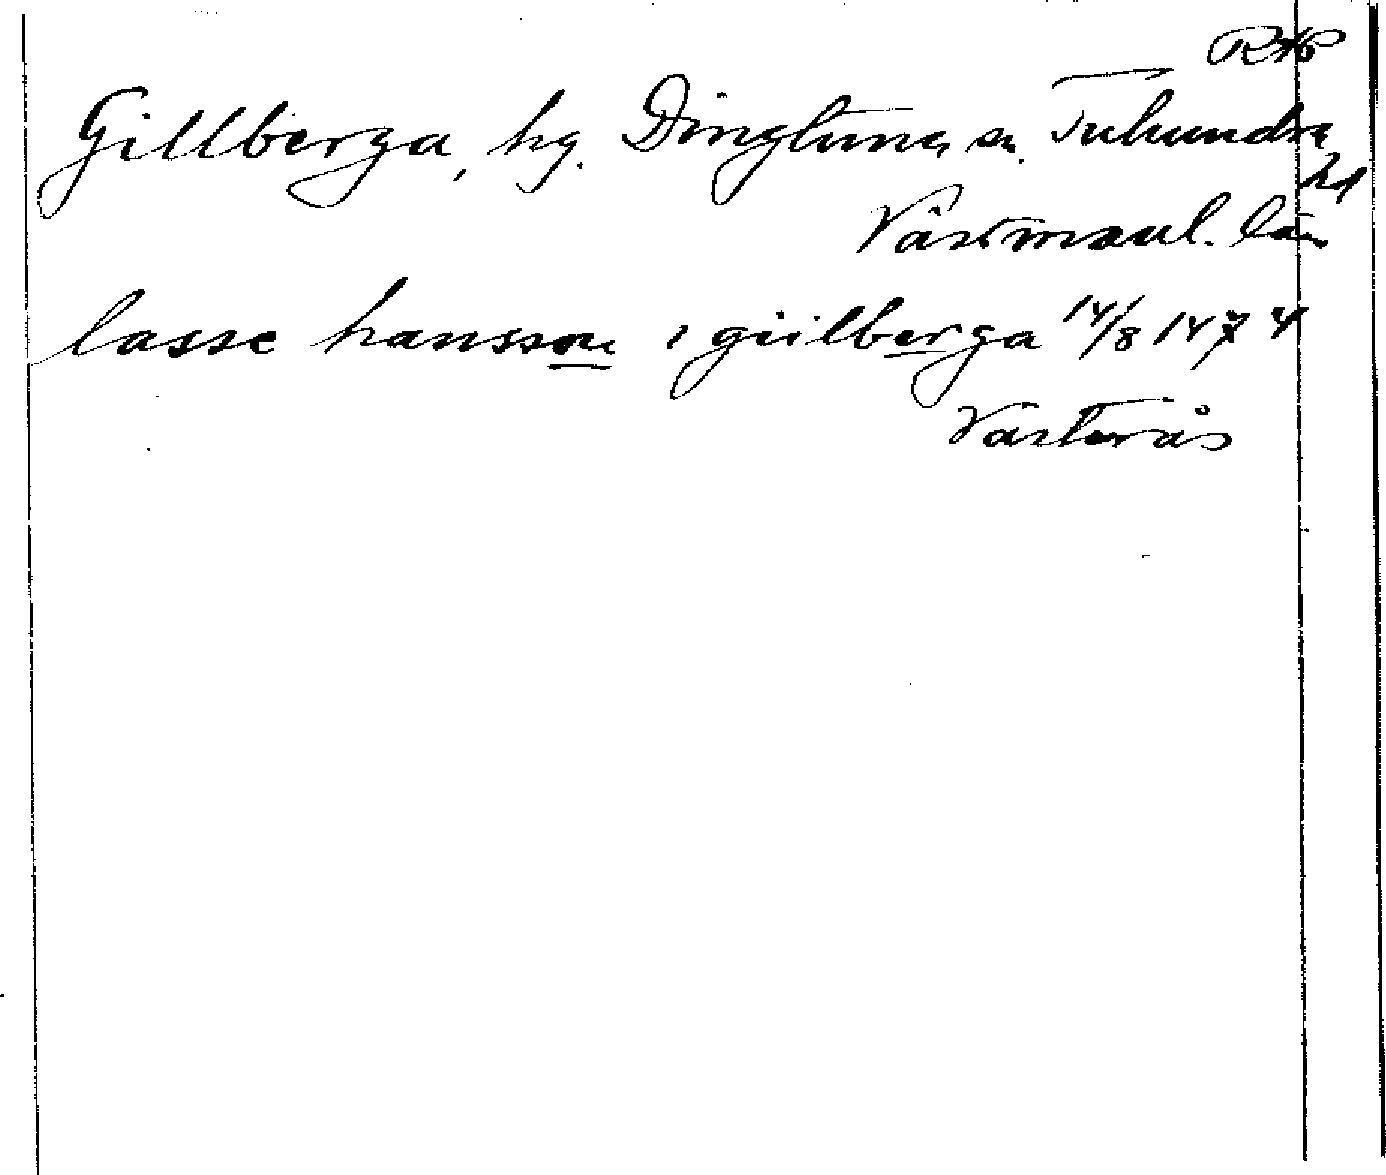 RAP
Gillberga, hg. Dingtuna sn. Tuhundra
hd
Västmanl. län
lasse hansson i giilberga 14/8 1474
Västerås